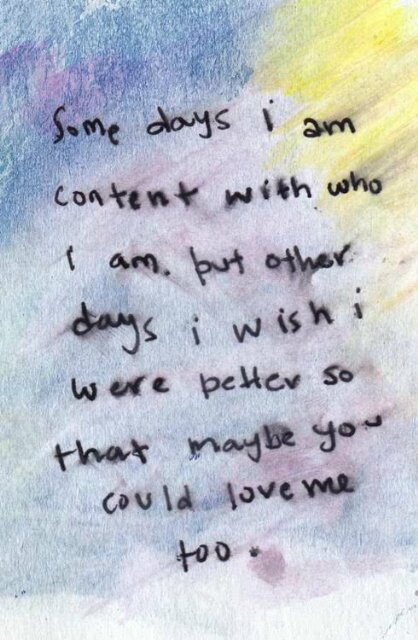 Some days i am
content with who
i am. but other
days i wish i
were better so
that maybe you
could love me
too.